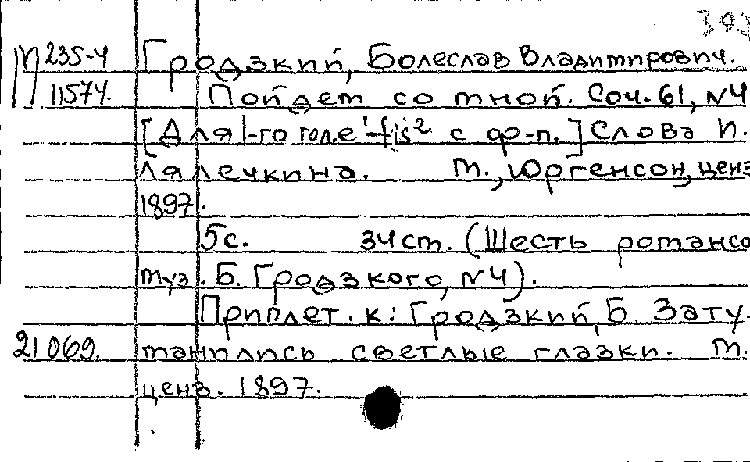 П 235-4 Гродзкий, Болеслав Владимирович.
11574. Пойдем со мной. Соч. 61, №4
[Для 1-го гол. e¹-fis² с ф-п.] Слова И.
Лялечкина. М., Юргенсон, ценз
1897.
5с. 34см. (Шесть романсо
муз. Б. Гродзкого, №4).
Приплет. к: Гродзкий, Б. Зату-
21069. манились светлые глазки. М.
ценз. 1897.